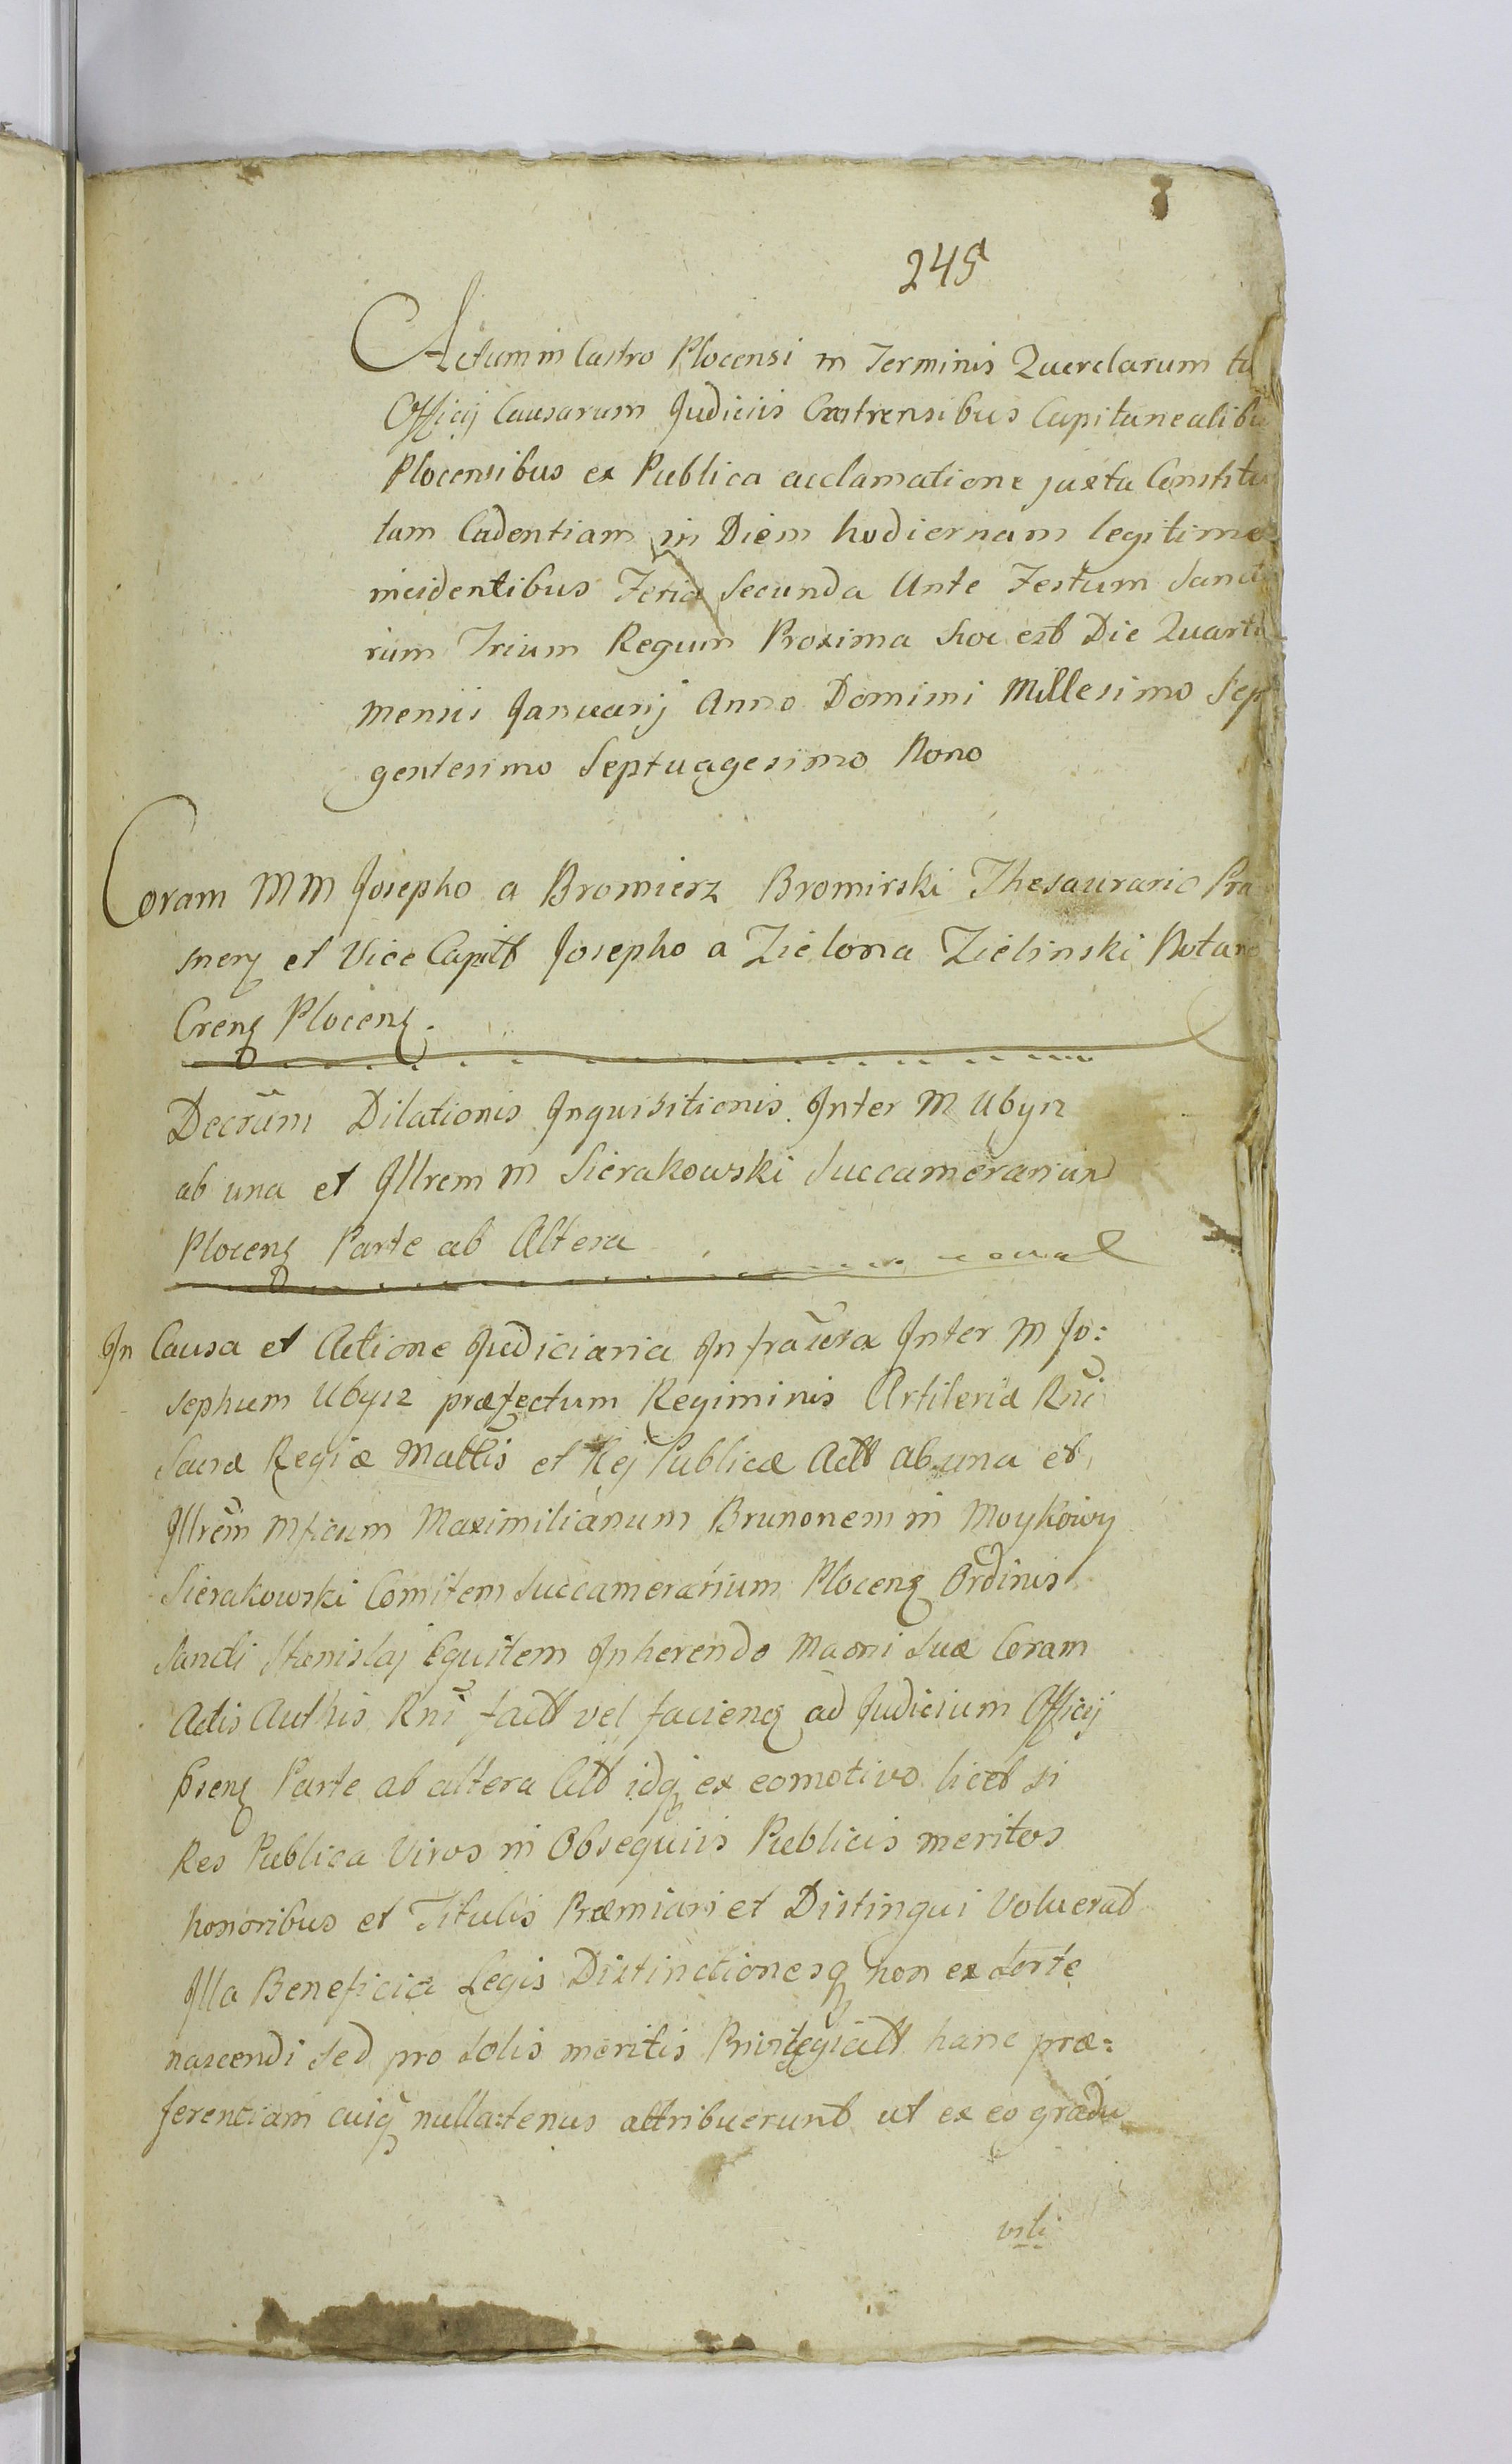 245
Actum in Castro Plocensi in Terminis Querelarum tu
Officij Causarum Judiciis Castrensibus Capitanealibu
Plocensibus ex Publica acclamatione juxta Constitu
tam Cadentiam in Diem hodiernam legitime
incidentibus Feria Secunda Ante Festum Sancto
rum Trium Regum Proxima hoc est Die Quarta
mensis Januarij Anno Domini Millesimo Sep
gentesimo Septuagesimo Nono
Coram MM Josepho a Bromierz Bromirski Thesaurario Pra
sneng et Vice Capitt Josepho a Zielona Zielinski Notario
Creng Ploceng.
Decrum Dilationis Inquisitionis Inter M Ubysz
ab una et Illrem M Sierakowski Succamerarium
Ploceng Parte ab Altera
In Causa et Actione Judiciaria Infrascrta Inter M Jo:
sephum Ubysz præfectum Regiminis Artileriæ Rni
Sacræ Regiæ Mattis et Rej Publicæ Actt ab una et
Illrem Mficum Maximilianum Brunonem in Moykowy
Sierakowski Comitem Succamerarium Ploceng Ordinis
Sancti Stanislaj Equitem Inherendo Maoni Suæ Coram
Actis Authis Rni factt vel facieng ad Judicium Officij
Pseng Parte ab altera Citt idq ex eo motivo licet si
Res Publica Viros in Obsequiis Publicis meritos
honoribus et Titulis Præmiari et Distingui Voluerat
Illa Beneficia Legis Distinctionesq non ex Sorte
nascendi Sed pro Solis meritis Privilegiatt hanc præ:
ferenciam cuiq nullatenus attribuerunt ut ex eo gradu